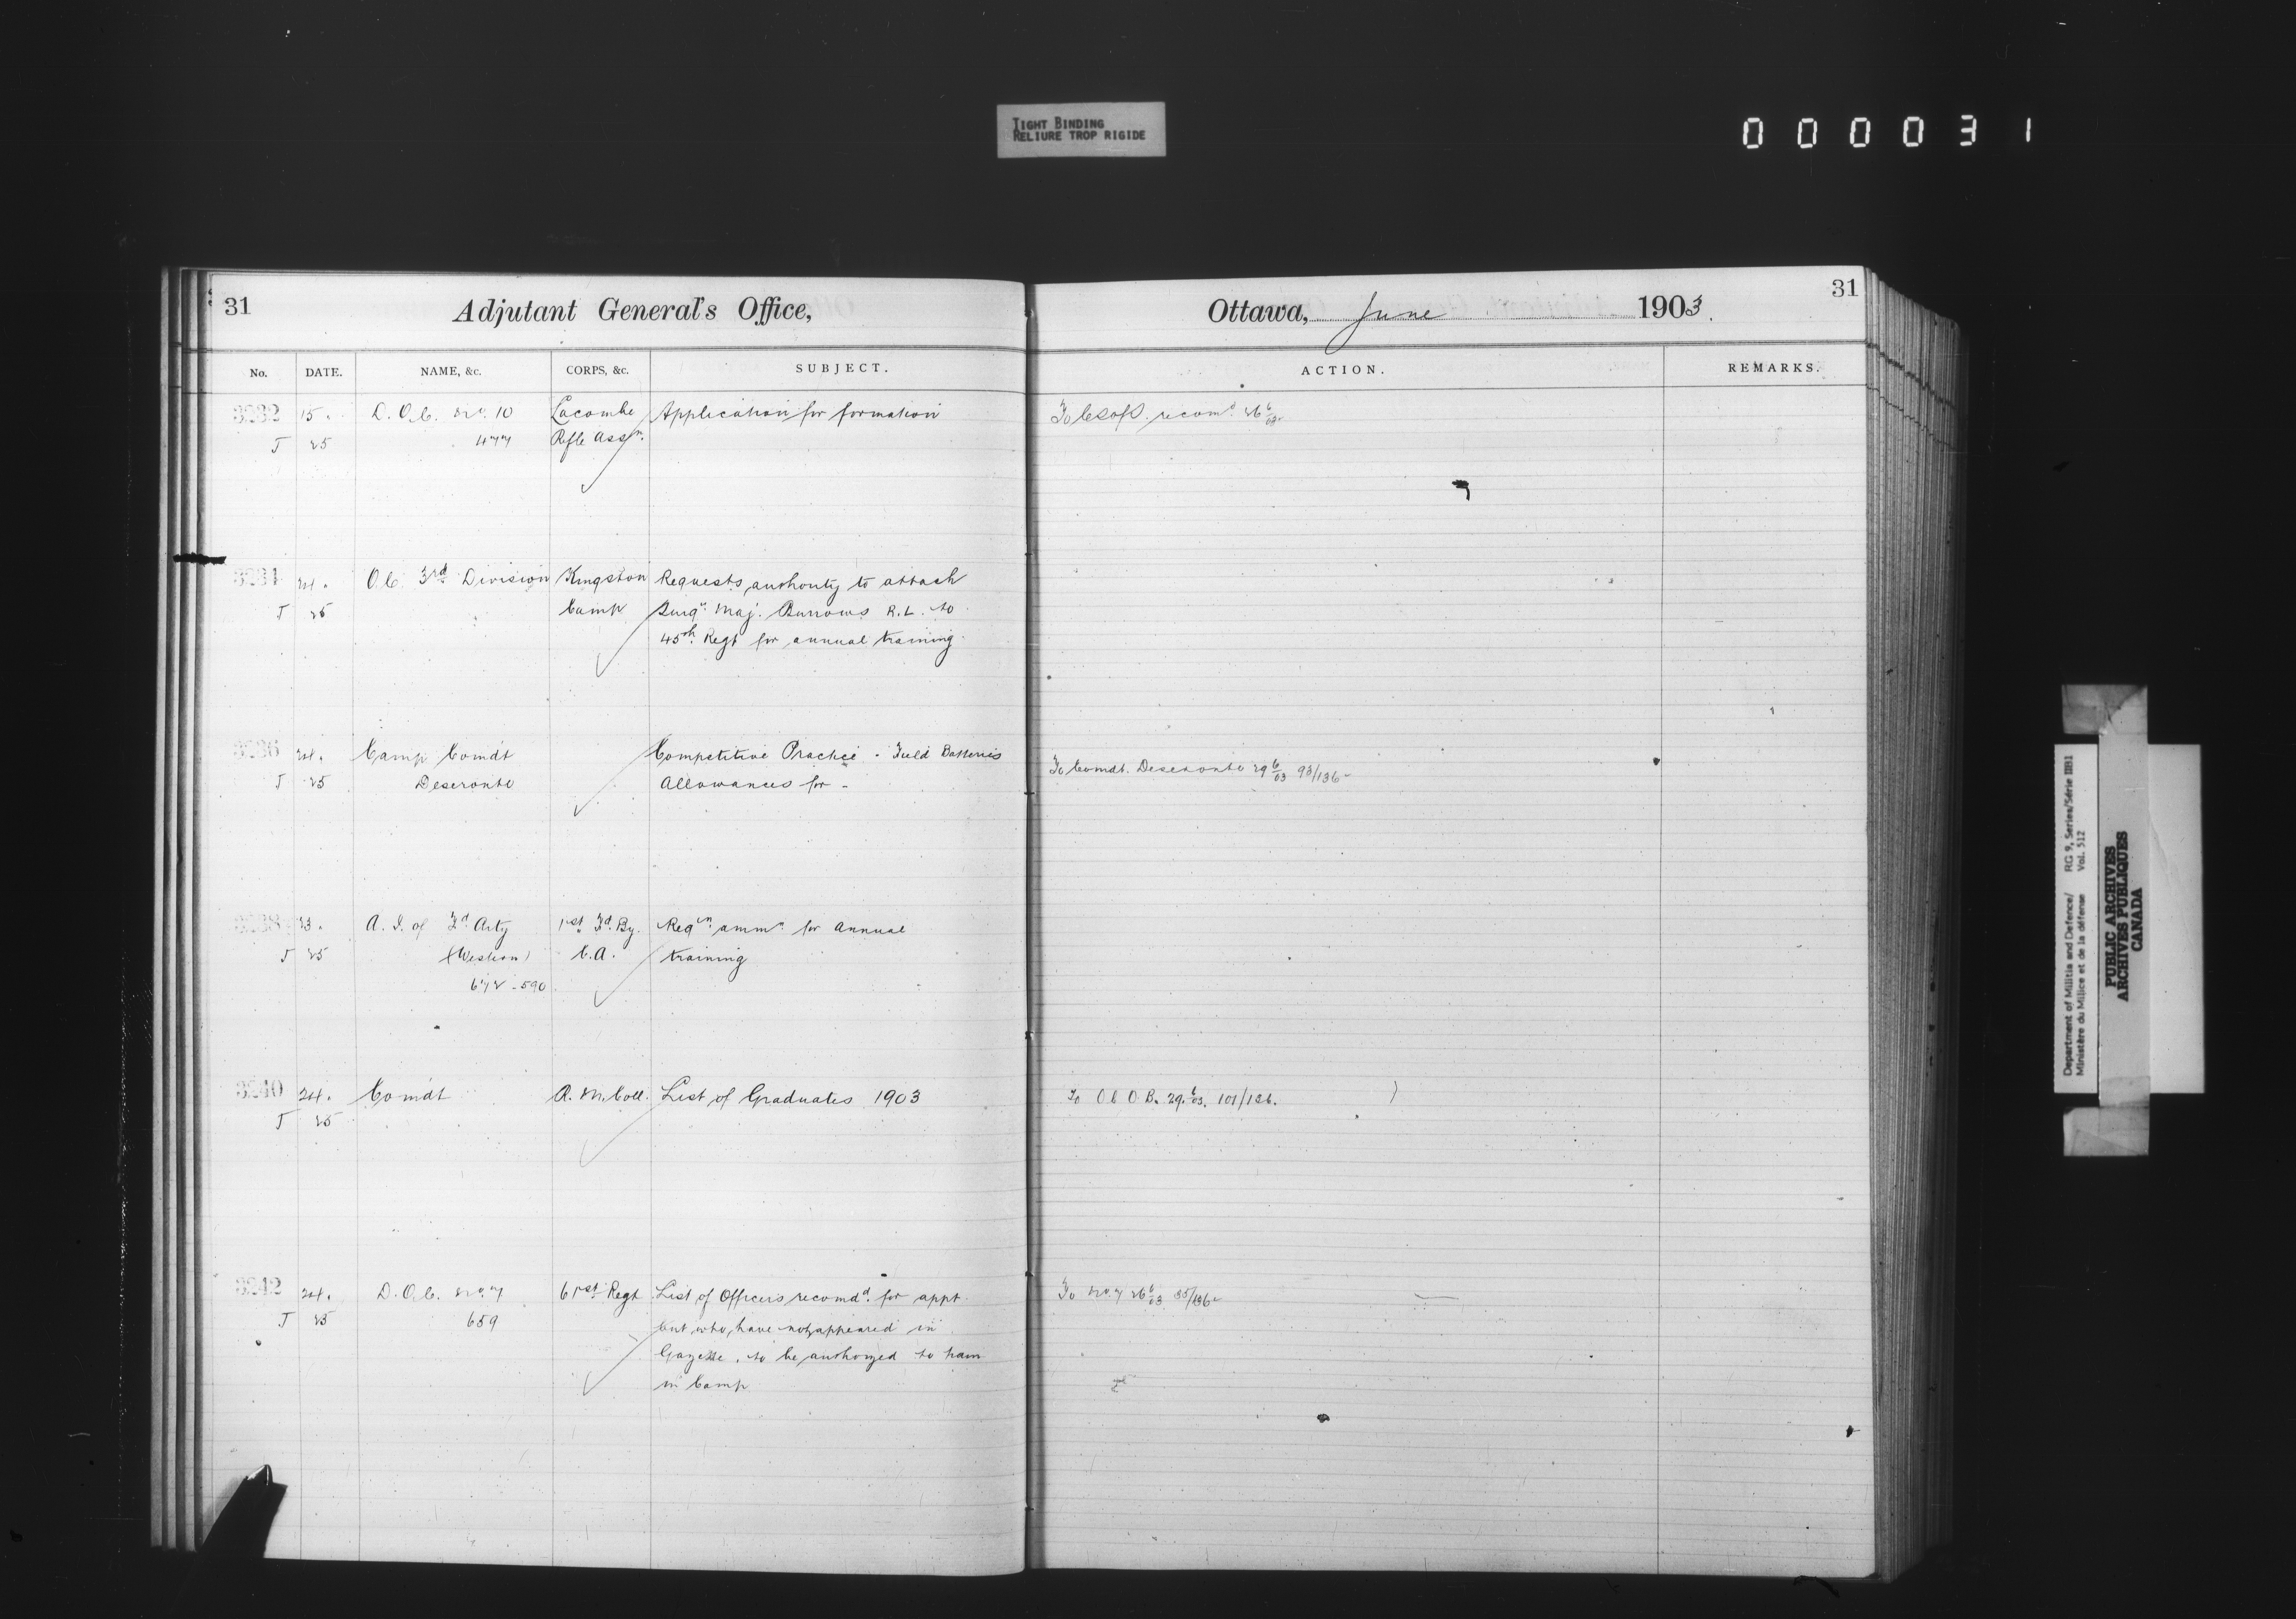 TIGHT BINDING
RELIURE TROP RIGIDE
000031
31
Adjutant General's Office,
No. DATE. NAME, &c. CORPS, &c. SUBJECT.
3232 15. D.O.C. No. 10 Lacombe Application for formation
J 25 477 Rifle Assn.
3234 24. O.C. 3rd Division Kingston Requests authority to attach
J 25 Camp Surgn. Maj. Burrows R.L. to
45th Regt for annual training.
3236 24. Camp Comdt Competitive Practice - Field Batteries
J 25 Deseronto Allowances for -
3238 23. A. I. of Fd Arty 1st Fd. By. Reqn ammn. for annual
J 25 (Western) C.A. training
672-590
3240 24. Comdt R.M. Coll. List of Graduates 1903
J 25
3242 24. D.O.C. No. 7 61st Regt List of Officers recomdd. for appt.
J 25 659 but who have not appeared in
Gazette, to be authorized to train
in Camp
Ottawa, June 1903.
31
ACTION. REMARKS.
To recomd 26 6/03
To Comdt. Deseronto 29 6/03 93/136
To O C O B. 29. 6/03. 101/136.
To No. 7 26 6/03 85/136
Department of Militia and Defence/ RG 9, Series/Série IIB1
Ministère du Milice et de la défense Vol. 512
PUBLIC ARCHIVES
ARCHIVES PUBLIQUES
CANADA